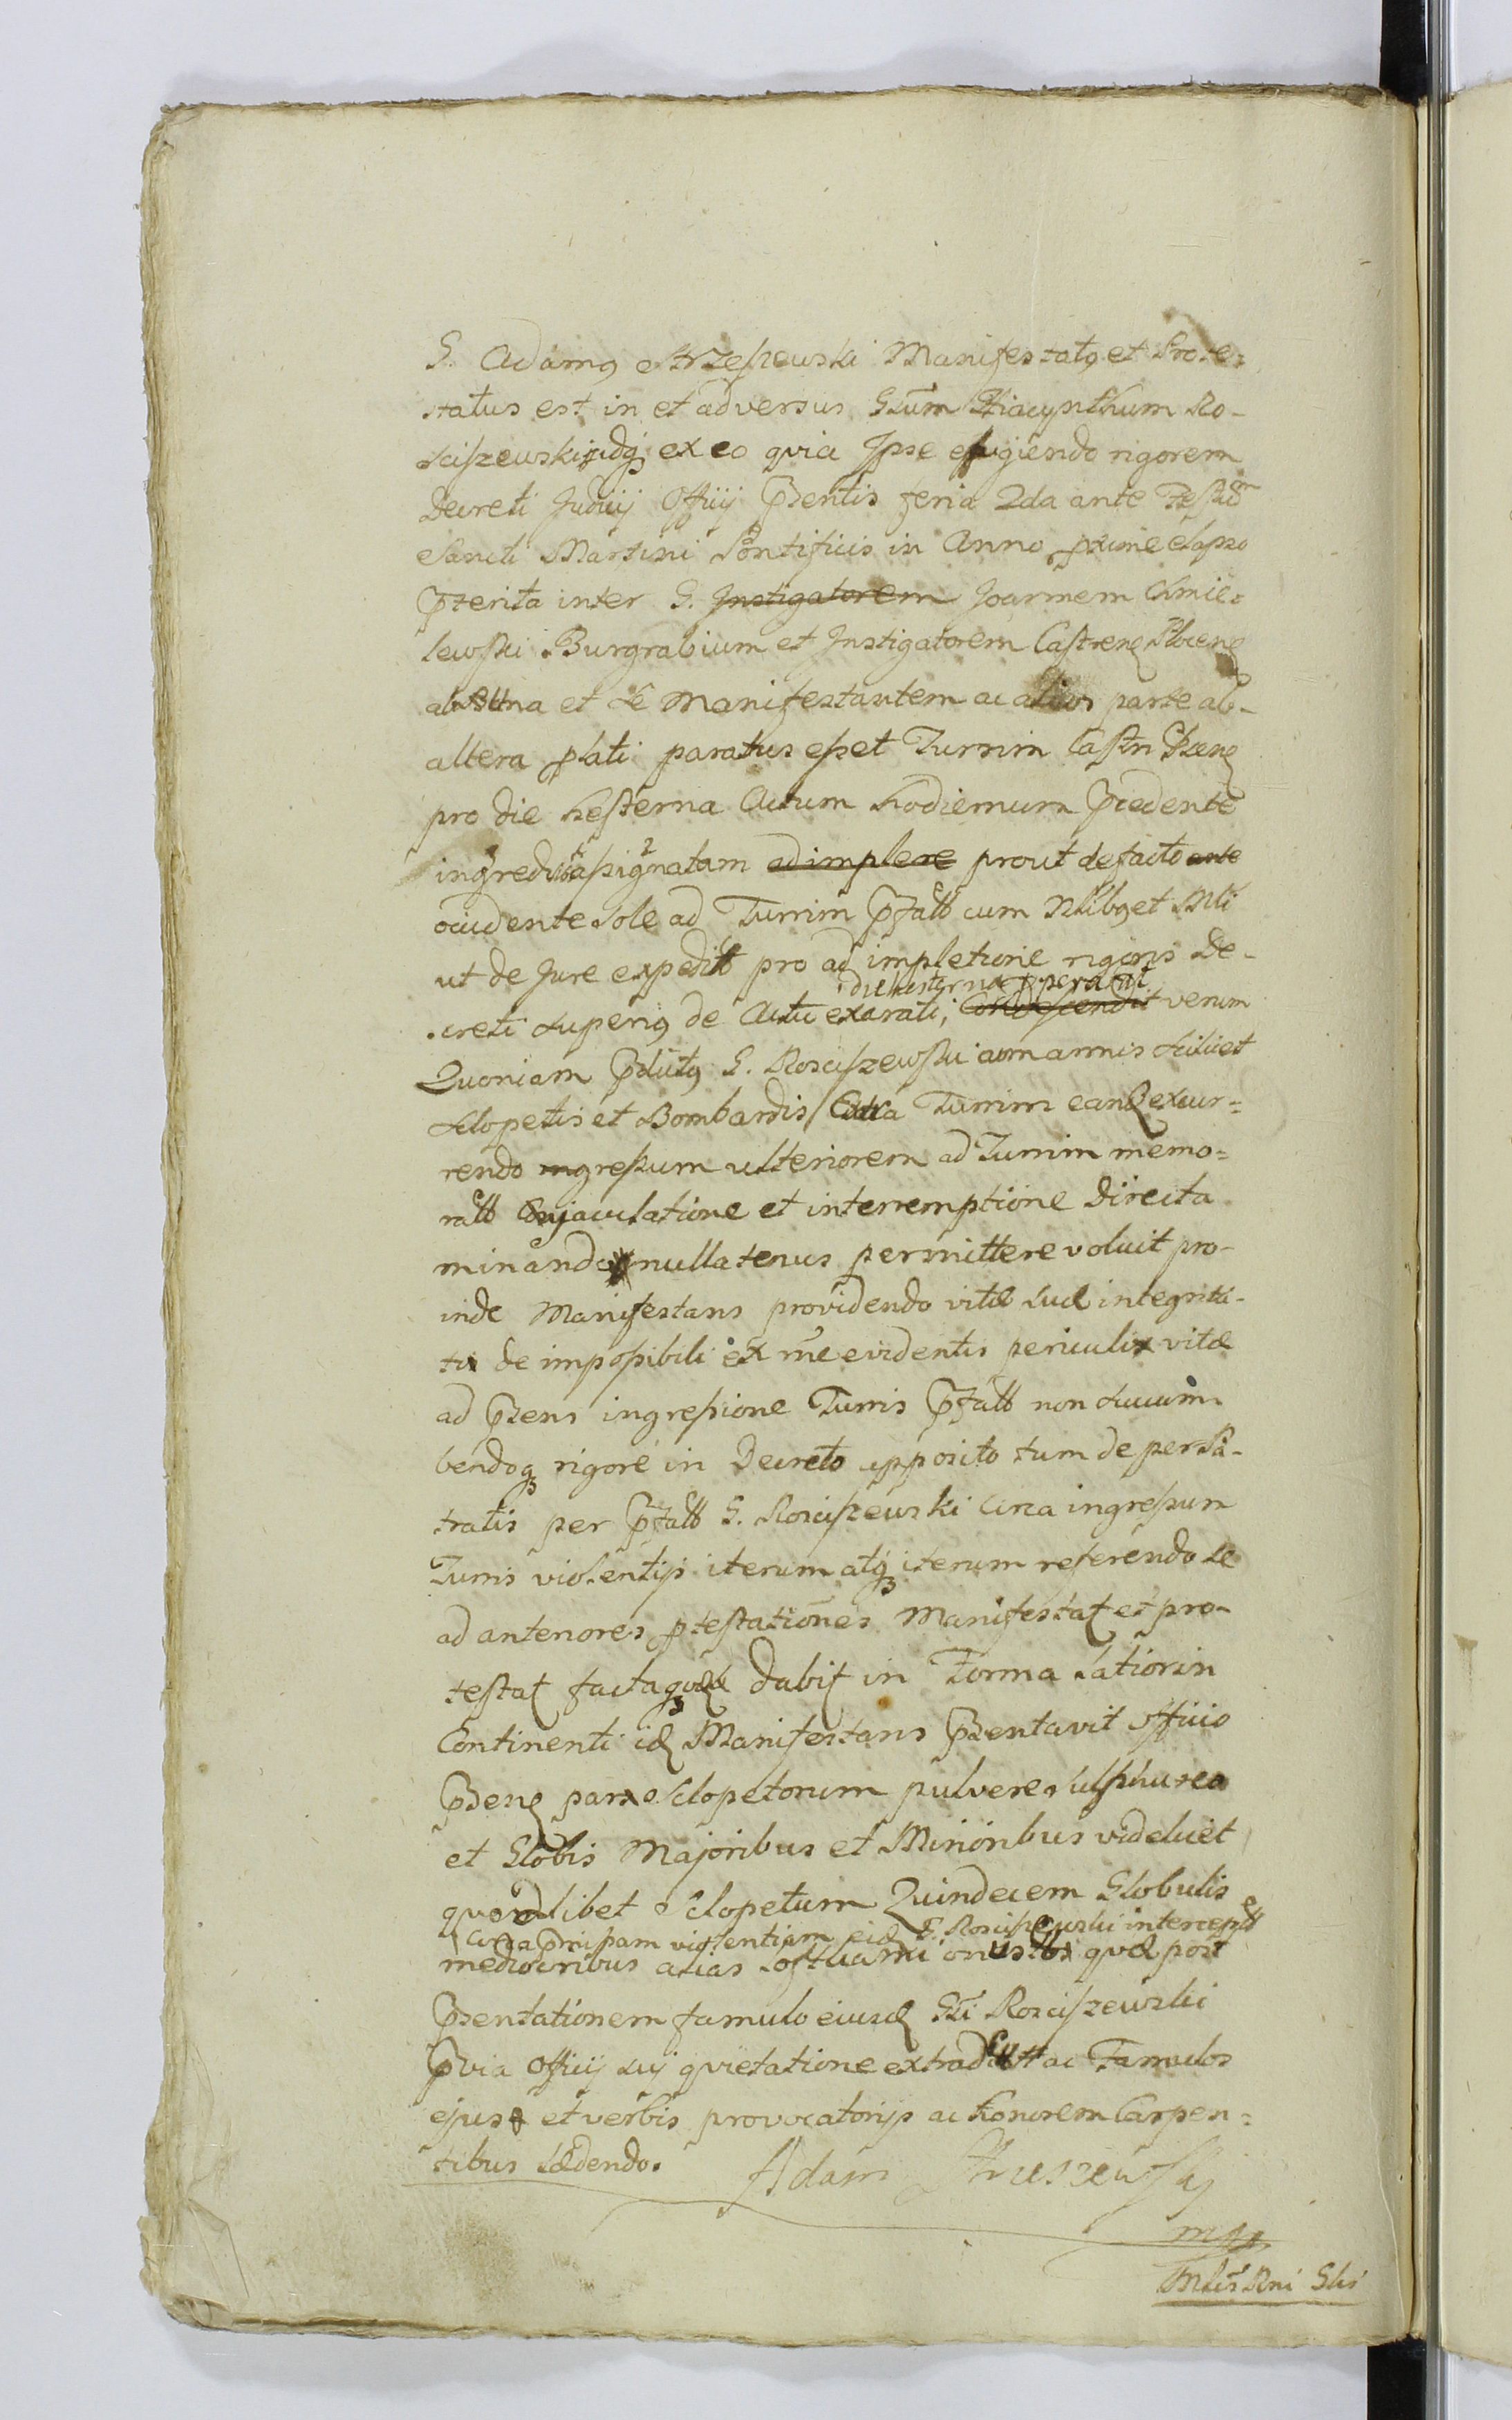 G. Adamus Strzeszewski Manifestatus et Prote-
status est in et adversus Grũm Hiacynthum Ro-
sciszewski idq ex eo quia Ipse effugiendo rigorem
Decreti Judicij Officij Pntis feria 2da ante Festum
Sancti Martini Pontificis in Anno pxime elapso
Pterita inter G. Instigatorem Joannem Chmie-
lewski Burgrabium et Instigatorem Castrens Plocens
ab una et se Manifestantem ac alios parte ab-
altera plati paratus esset Turrim Castri Plocens
pro die hesterna Actum hodiernum Pcedente
ingredi assignatam adimplere prout de facto ante
occidente Sole ad Turrim Pfatt cum Nlibus et Mli
ut de Jure expedit pro ad impletione rigoris De-
die hesterna properavit
creti superius de Actu exarati, condescendit verum
Quoniam Pdictus G. Rosciszewski cum armis scilicet
sclopetis et Bombardis Circa Turrim eand excur-
rendo ingressum ulteriorem ad Turrim memo-
ratt Conjaculatione et interremptione directa
minando nullatenus permittere voluit pro-
inde Manifestans providendo vitæ suæ integrita-
ti de impossibili et rñe evidentis periculi vitæ
ad Psens ingressione Turris Pfatt non succum-
bendoq rigore in Decreto apposito tum de perpa-
tratis per Pfatt G. Rosciszewski Circa ingressum
Turris violentijs iterum atq iterum referendo se
ad anteriores ptestationes Manifestat et pro-
testat factaq dabit in Forma latiori in
Continenti id Manifestans Psentavit officio
Psens par sclopetorum pulvere sulphureo
et Globis Majoribus et Minoribus videlicet
quodlibet Sclopetum Quindecem Globulis
Circa Pmissam violentiam eid G. Rosciszewski intercept
mediocribus alias Loftkami onustos quæ post
Psentationem famulo eiusd Gsi Rosciszewski
Pvia Officij sui quietatione extradit ac Famulos
ejus et verbis provocatorijs ac honorem Carpen-
tibus lædendo.
Adam Strzeszewsky
mpp